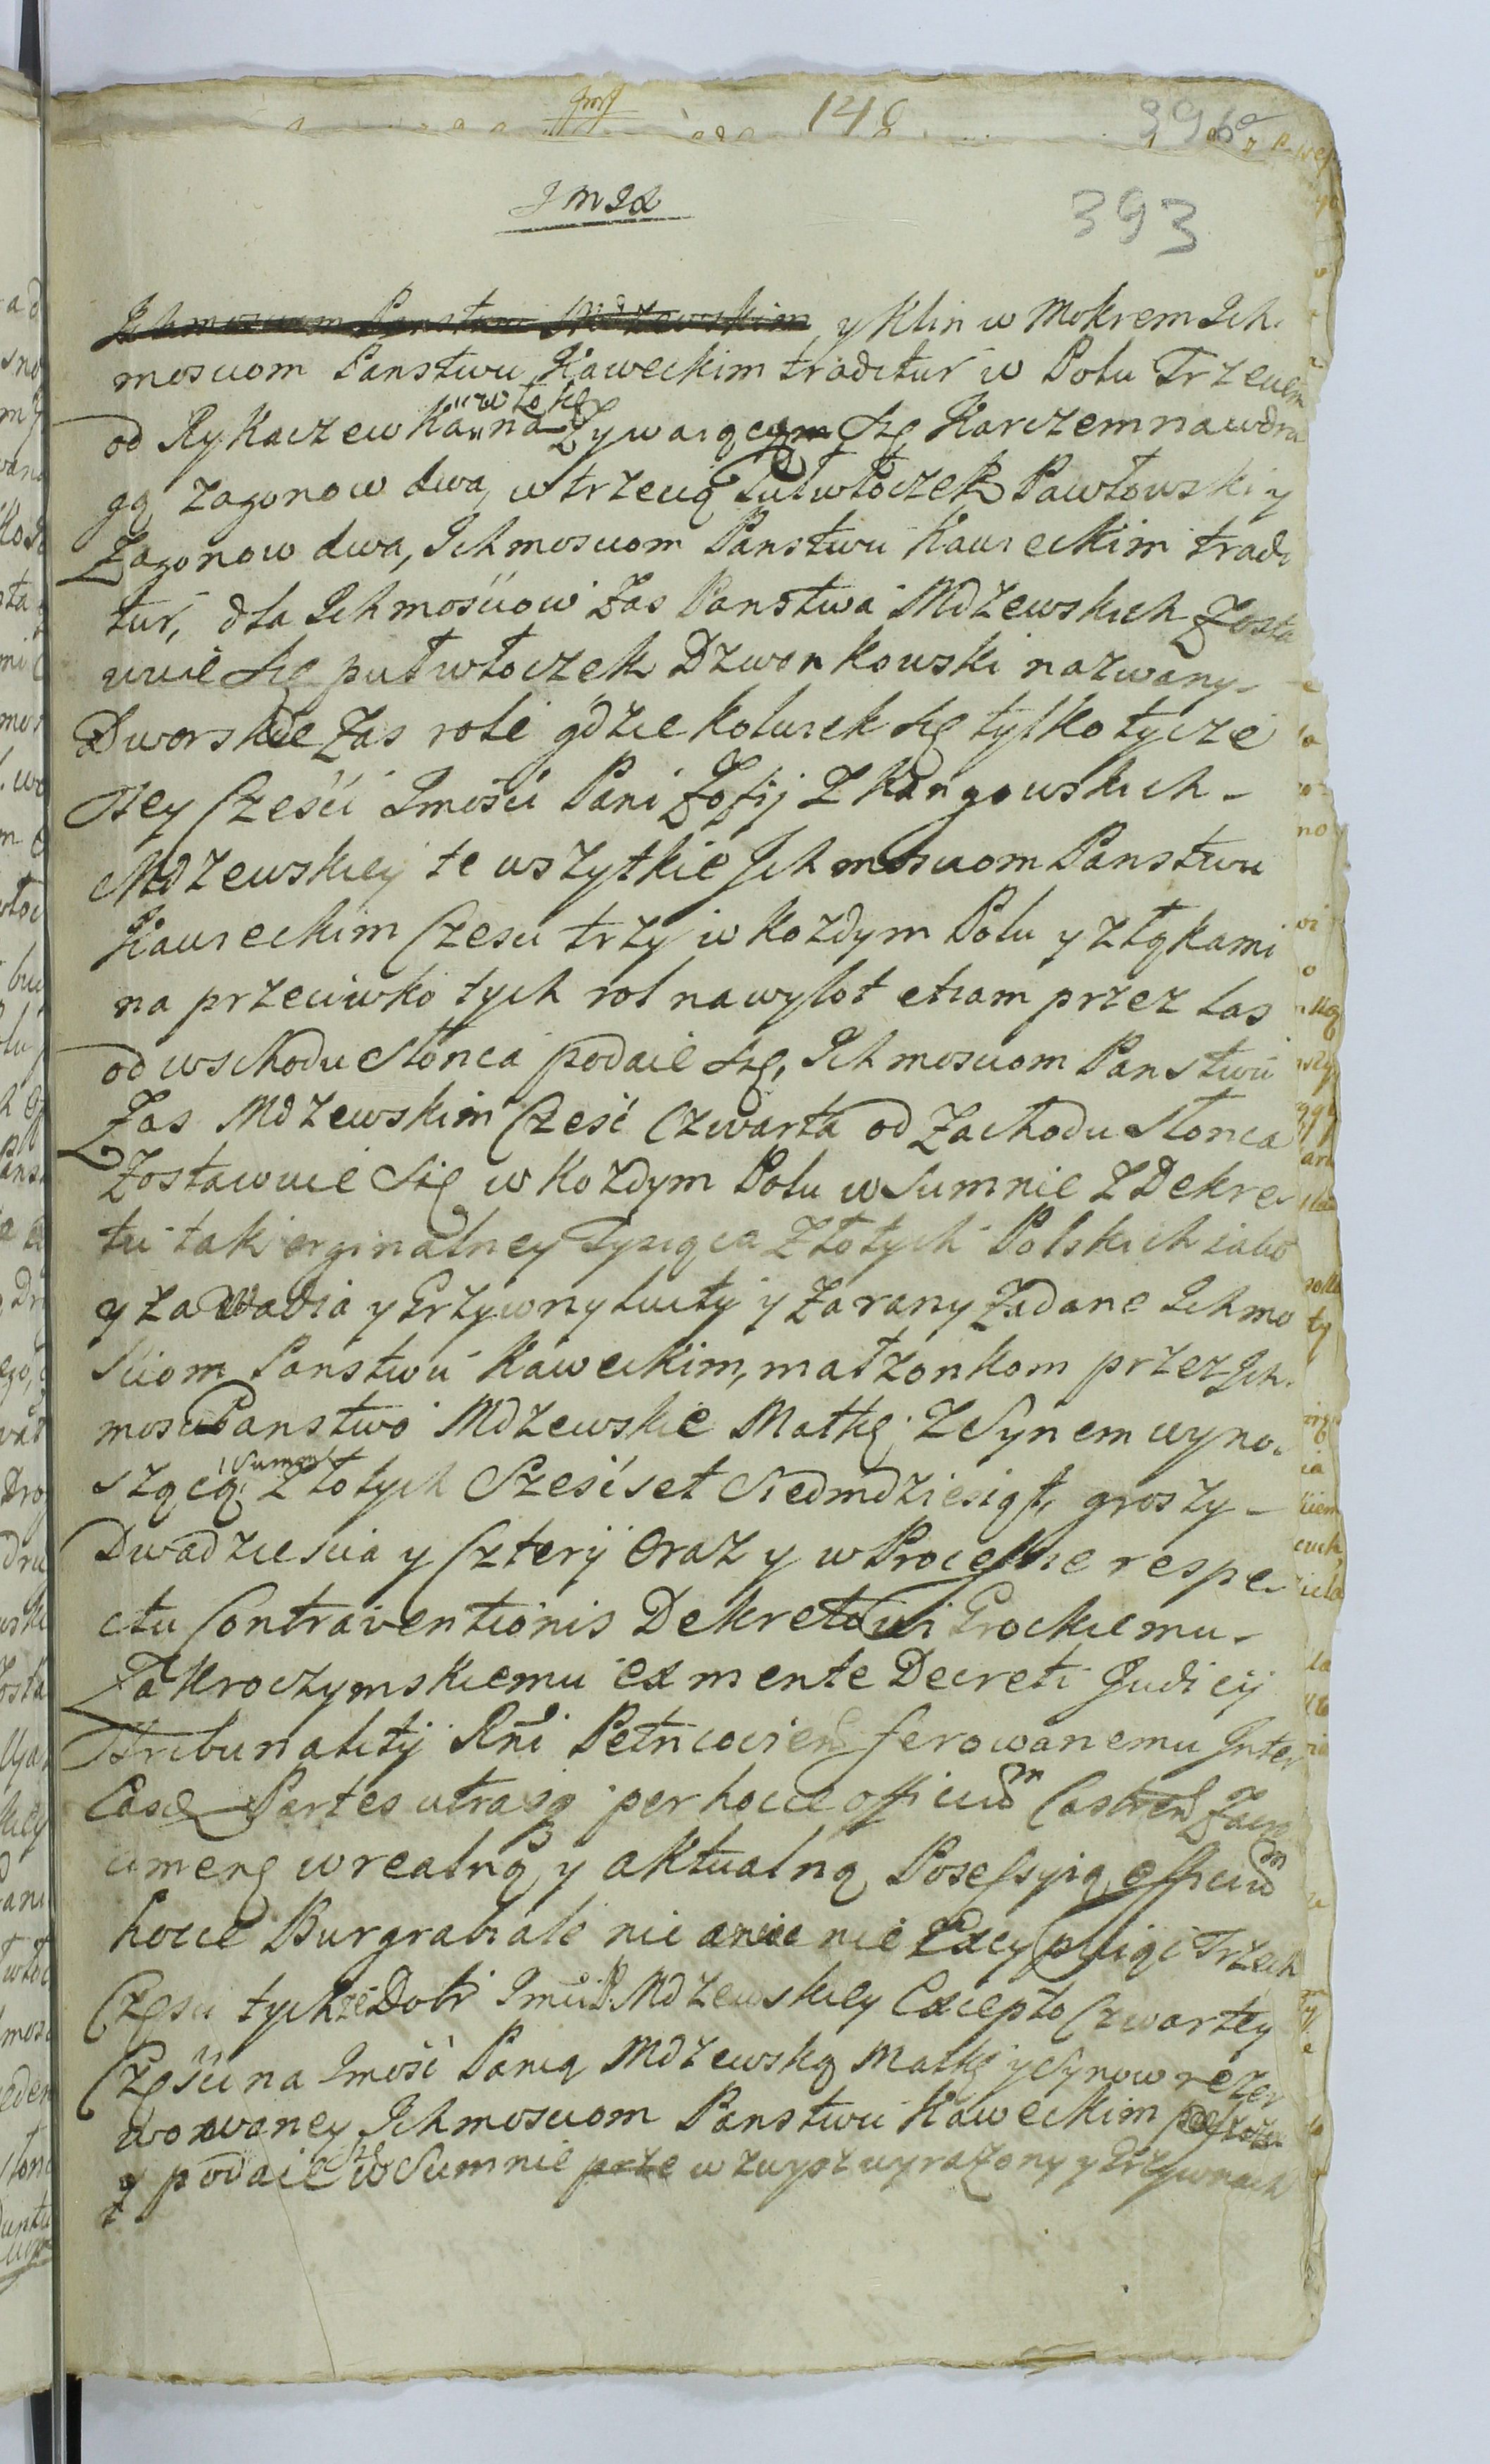 148
396
Jmsa
393
Ichmosciom Panstwu Mdzewskim, y Klin w Mokrem Ich
moscuom Panstwu Kaweckim traditur w Polu Trzeciem
od Rykaczew Ka na włokę Zywaiącym Się Karczemna wdru
gą Zagonow dwa, w trzecią Pułwłoczek Pawłowski y
Zagonow dwa, Ichmosciom Panstwu Kaweckim tradi
tur, dla Ichmościow Zas Panstwa Mdzewskich Zosta
wuie Się pułwłoczek Dzwonkowski nazwany
Dworskie Zas role gdzie kolwiek Się tylko tycze
tey Cześci Jmości Pani Zofij Z Kangowskich
Mdzewskiey te wszytkie Jchmosciom Panstwu
Kaweckim Czesci trzy w Kozdym Polu y złąkami
na przeciwko tych rol nawylot etiam przez las
od wschodu Słonca podaie Się, Ichmosciom Panstwu
Zas Mdzewskim Cześć Czwarta od Zachodu Słonca
Zostawuie Się w Kozdym Polu w Summie Z Dekre
tu tak orginalney Tysiąca Złotych Polskich iako
y za Wadia y Grzywny luity y Zarany Zadane Ichmo
sciom Panstwu Kaweckim, małzonkom przez Ich
mosci Panstwo Mdzewskie Matkę Z Synem wyno
szącą Summę Złotych Sześćset Siedmdziesiąt, groszy
Dwadziescia y Cztery Oraz y w Processie respe
ctu Contraventionis Dekretowi Grockiemu
Zakroczymskiemu ex mente Decreti Judicij
Tribunalitij Rni ferowanemu Inter
Easdę Partes utrasq per hocce officium Castren
umenę w realną y aktualną Posessyią officium
hocce Burgrabiale nic a nic nie Excypuiąc Trzech
Częsci tychze Dobr Jmci P. Mdzewskiey Excepto Czwartey
Częśći na Jmość Panią Mdzewską Matkę y Synow rezer
wowaney Ichmosciom Panstwu Kaweckim
y podaie Się w Summie prze w zwysz wyrazony y Grzywnach